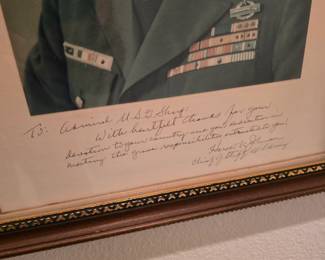 To: Admiral U.S.G. Sharp,
With heartfelt thanks for your
devotion to your country and your dedication in
meeting the grave responsibilities entrusted to you!
Harold K. Johnson
Chief of Staff US Army